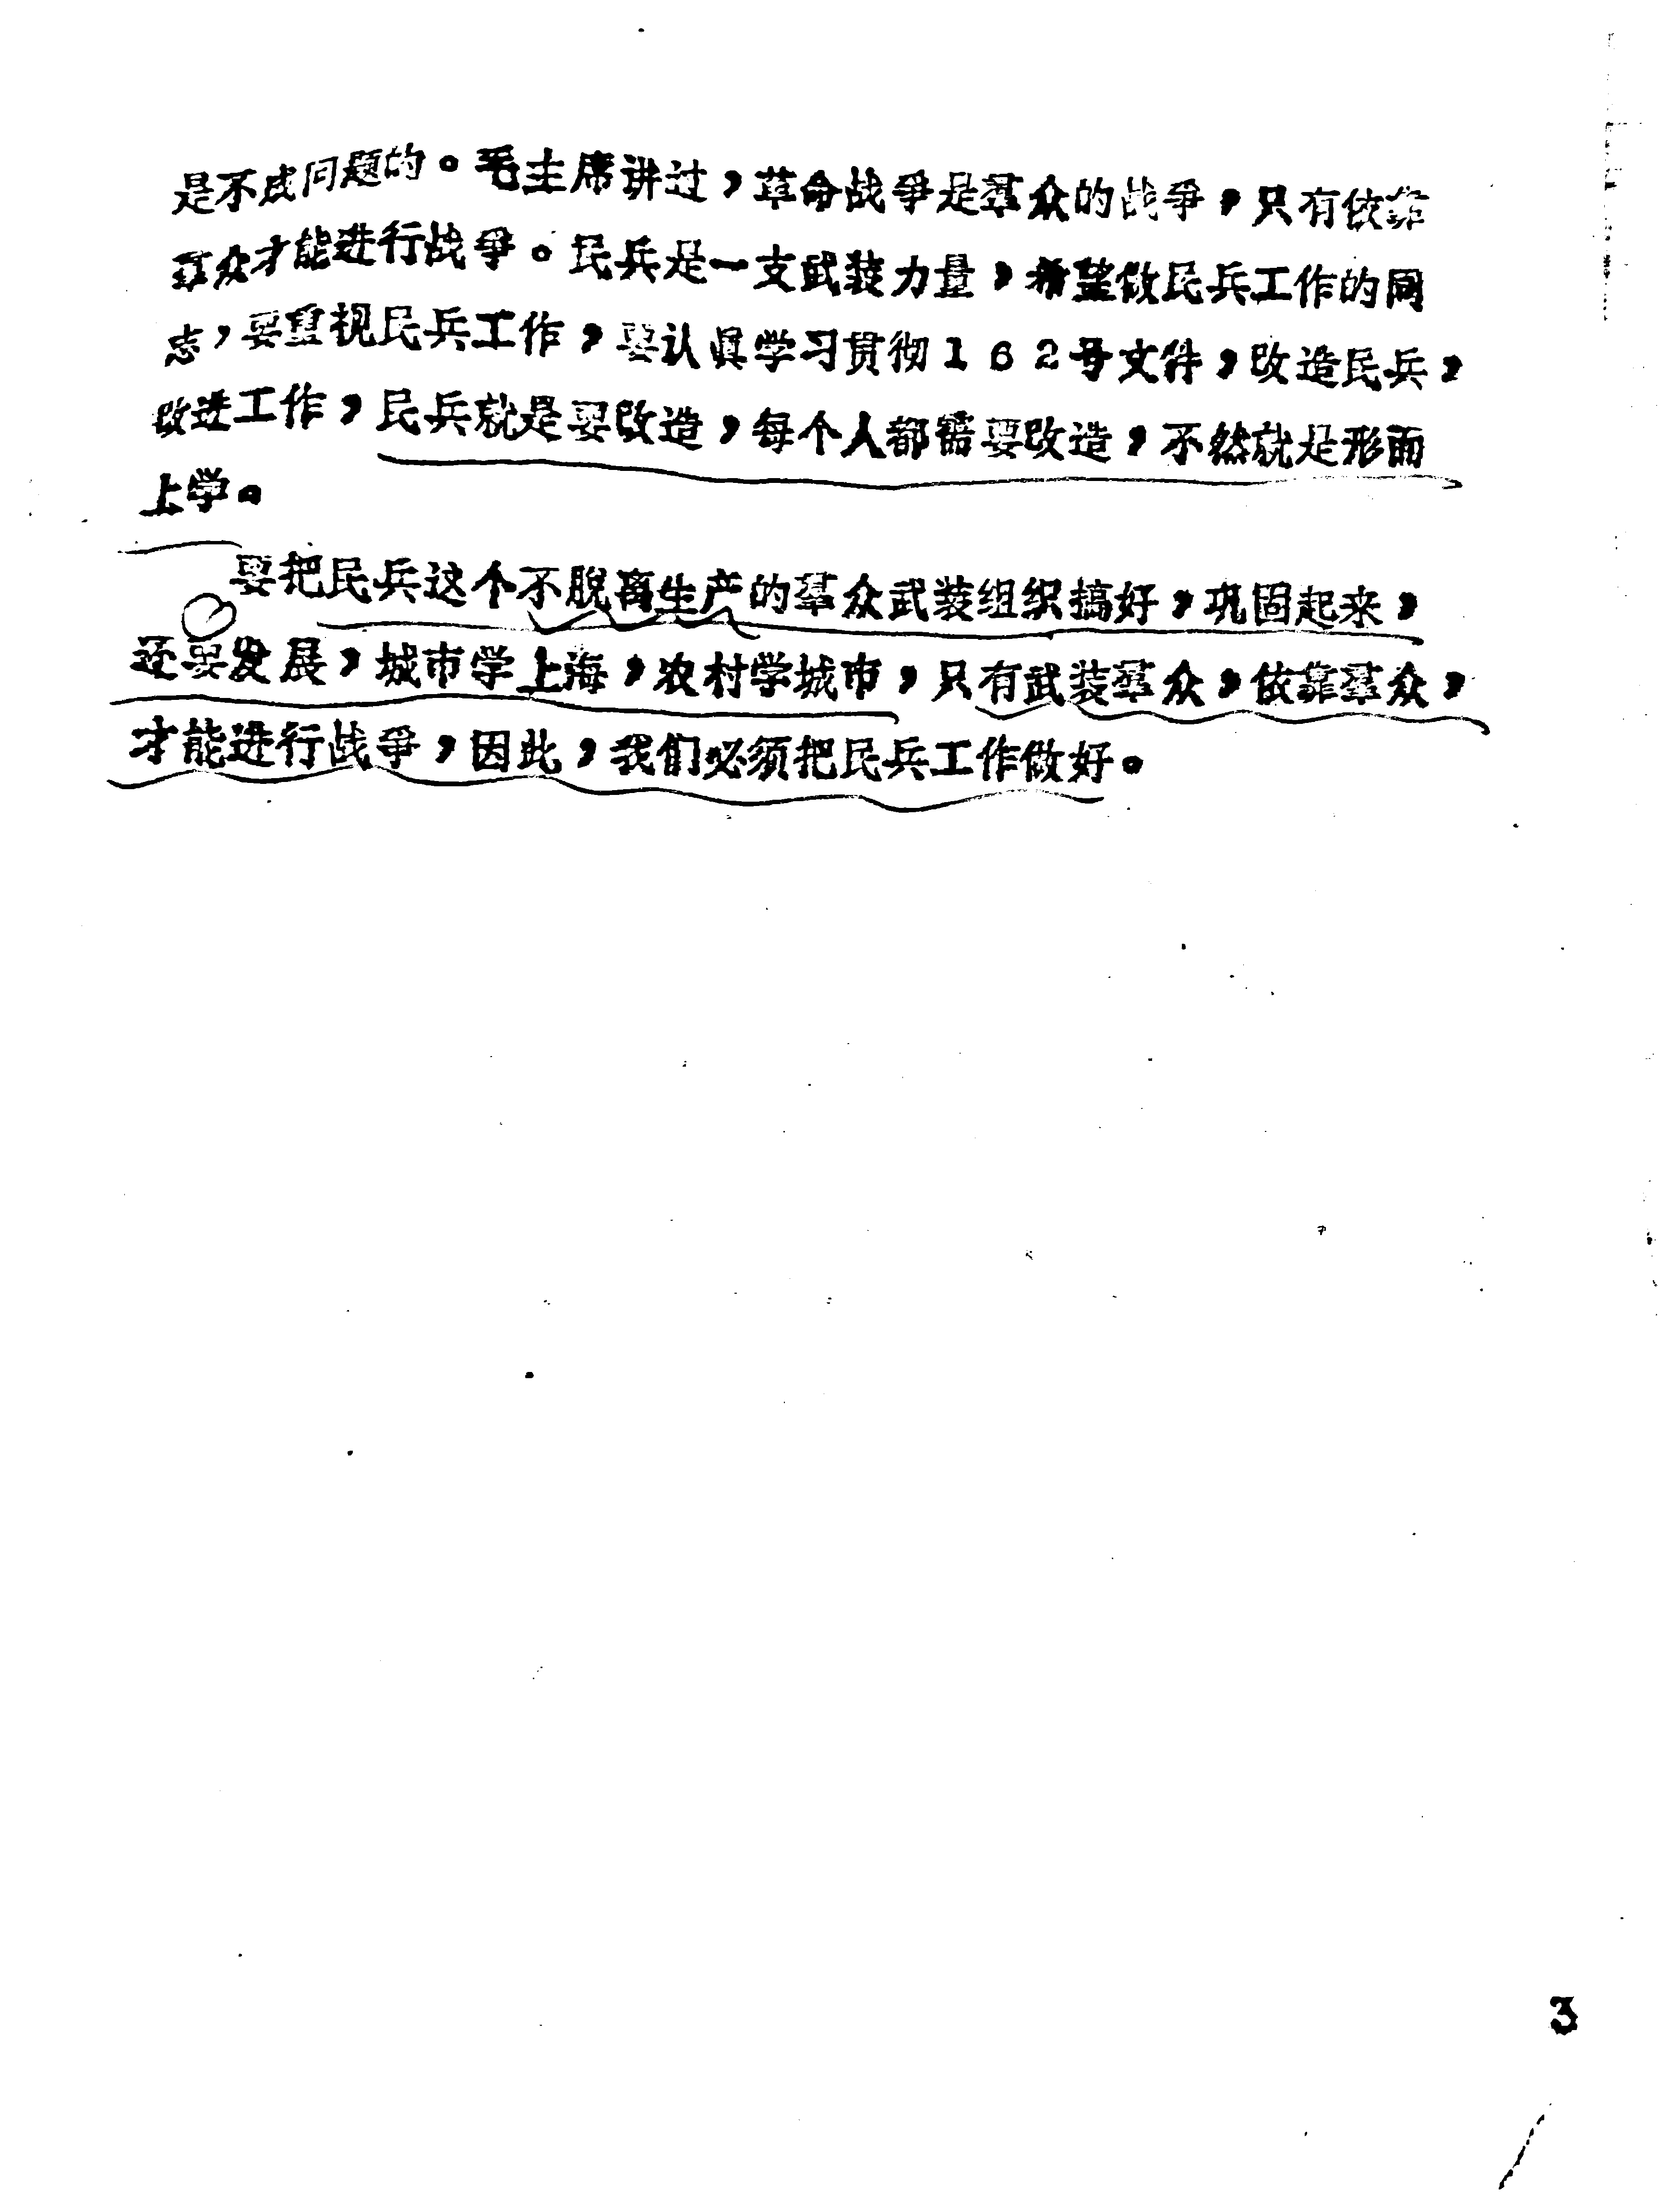 是不成问题的。毛主席讲过，革命战争是羣众的战争，只有依靠
羣众才能进行战争。民兵是一支武装力量，希望做民兵工作的同
志，要重视民兵工作，要认眞学习贯彻162号文件，改造民兵，
改进工作，民兵就是要改造，每个人都需要改造，不然就是形而
上学。
要把民兵这个不脫离生产的羣众武装组织搞好，巩固起来，
还要发展，城市学上海，农村学城市，只有武装羣众，依靠羣众，
才能进行战争，因此，我们必须把民兵工作做好。
3